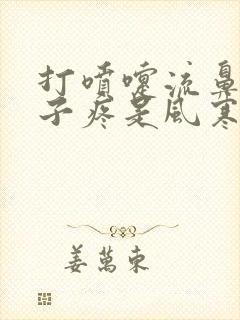 打喷嚏流鼻
子疼是风寒
姜萬東